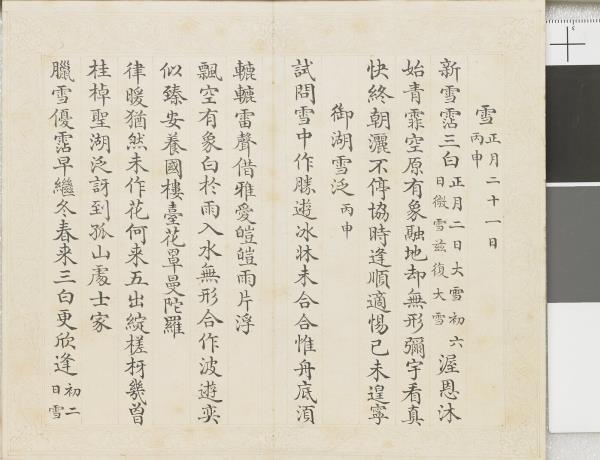 雪 正月二十一日丙申
新雪霑三白 正月二日大雪初六日微雪兹復大雪 渥恩沐
始青霏空原有象融地却無形彌宇看真
快終朝灑不停協時逢順適惕己未遑寧
御湖雪泛 丙申
試問雪中作勝遊冰牀未合合惟舟底須
轆轆雷聲借雅愛皚皚雨片浮
飄空有象白於雨入水無形合作波遊奕
似臻安養國樓臺花罩曼陀羅
律暖猶然未作花何来五出綻槎枒幾曾
桂棹聖湖泛訝到孤山處士家
臘雪優霑早繼冬春来三白更欣逢 初二日雪